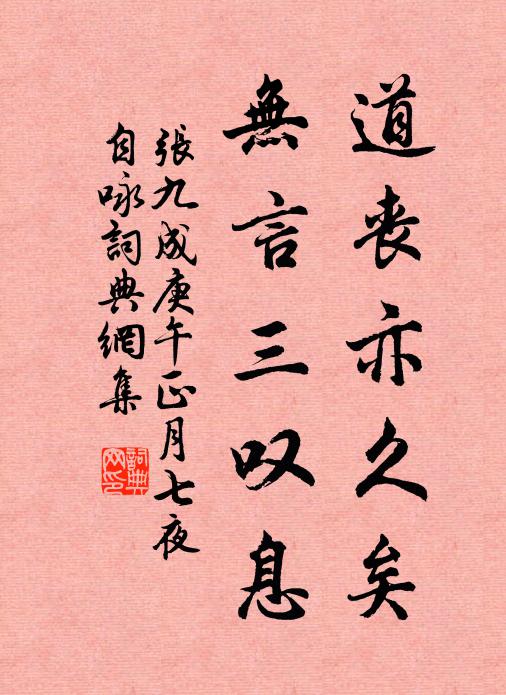 道丧亦久矣
無言三叹息
張九成庚午正月七夜
自咏詞典網集
詞典网印